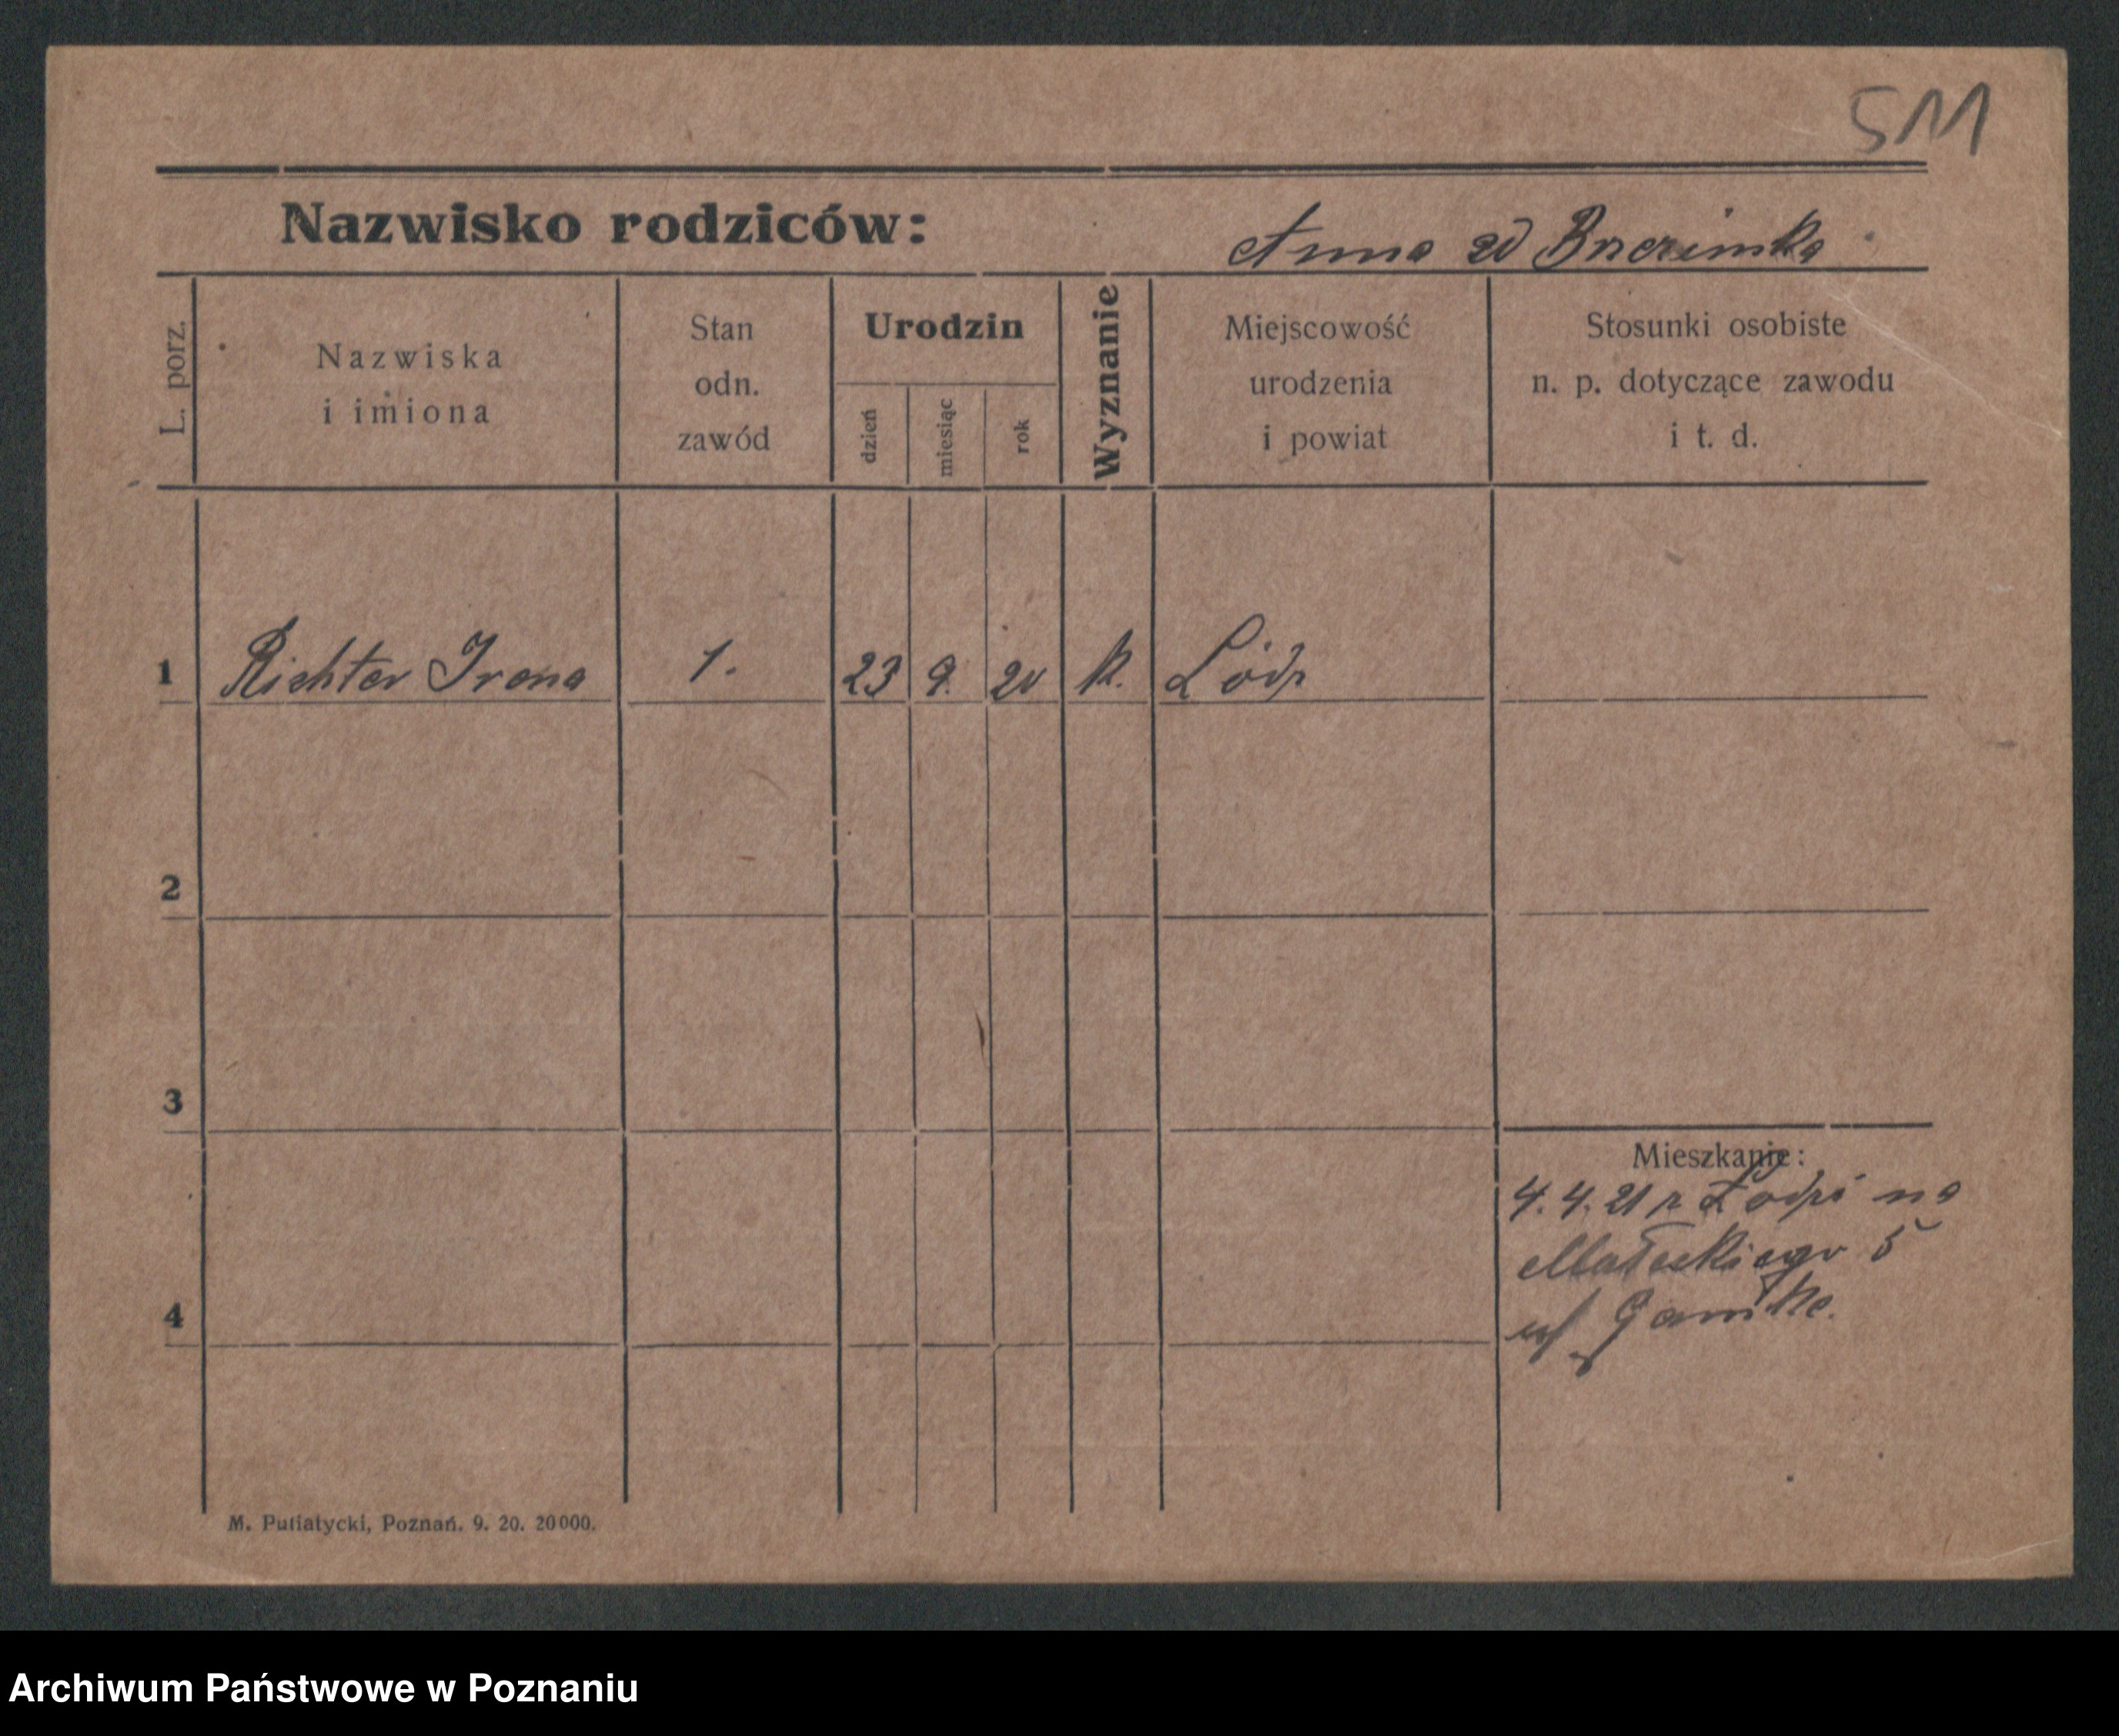 511
Nazwisko rodziców: Anna zd Brzezinka
L. porz.
Nazwiska
i imiona
Stan
odn.
zawód
Urodzin
dzień
miesiąc
rok
Wyznanie
Miejscowość
urodzenia
i powiat
Stosunki osobiste
n. p. dotyczące zawodu
i t. d.
1 Richter Irena 1. 23 9. 20 k. Łódz
2
3
4
Mieszkanie:
4. 4. 21 z Łodzi na
Małeckiego 5
M. Putiatycki, Poznań. 9. 20. 20000.
Archiwum Państwowe w Poznaniu